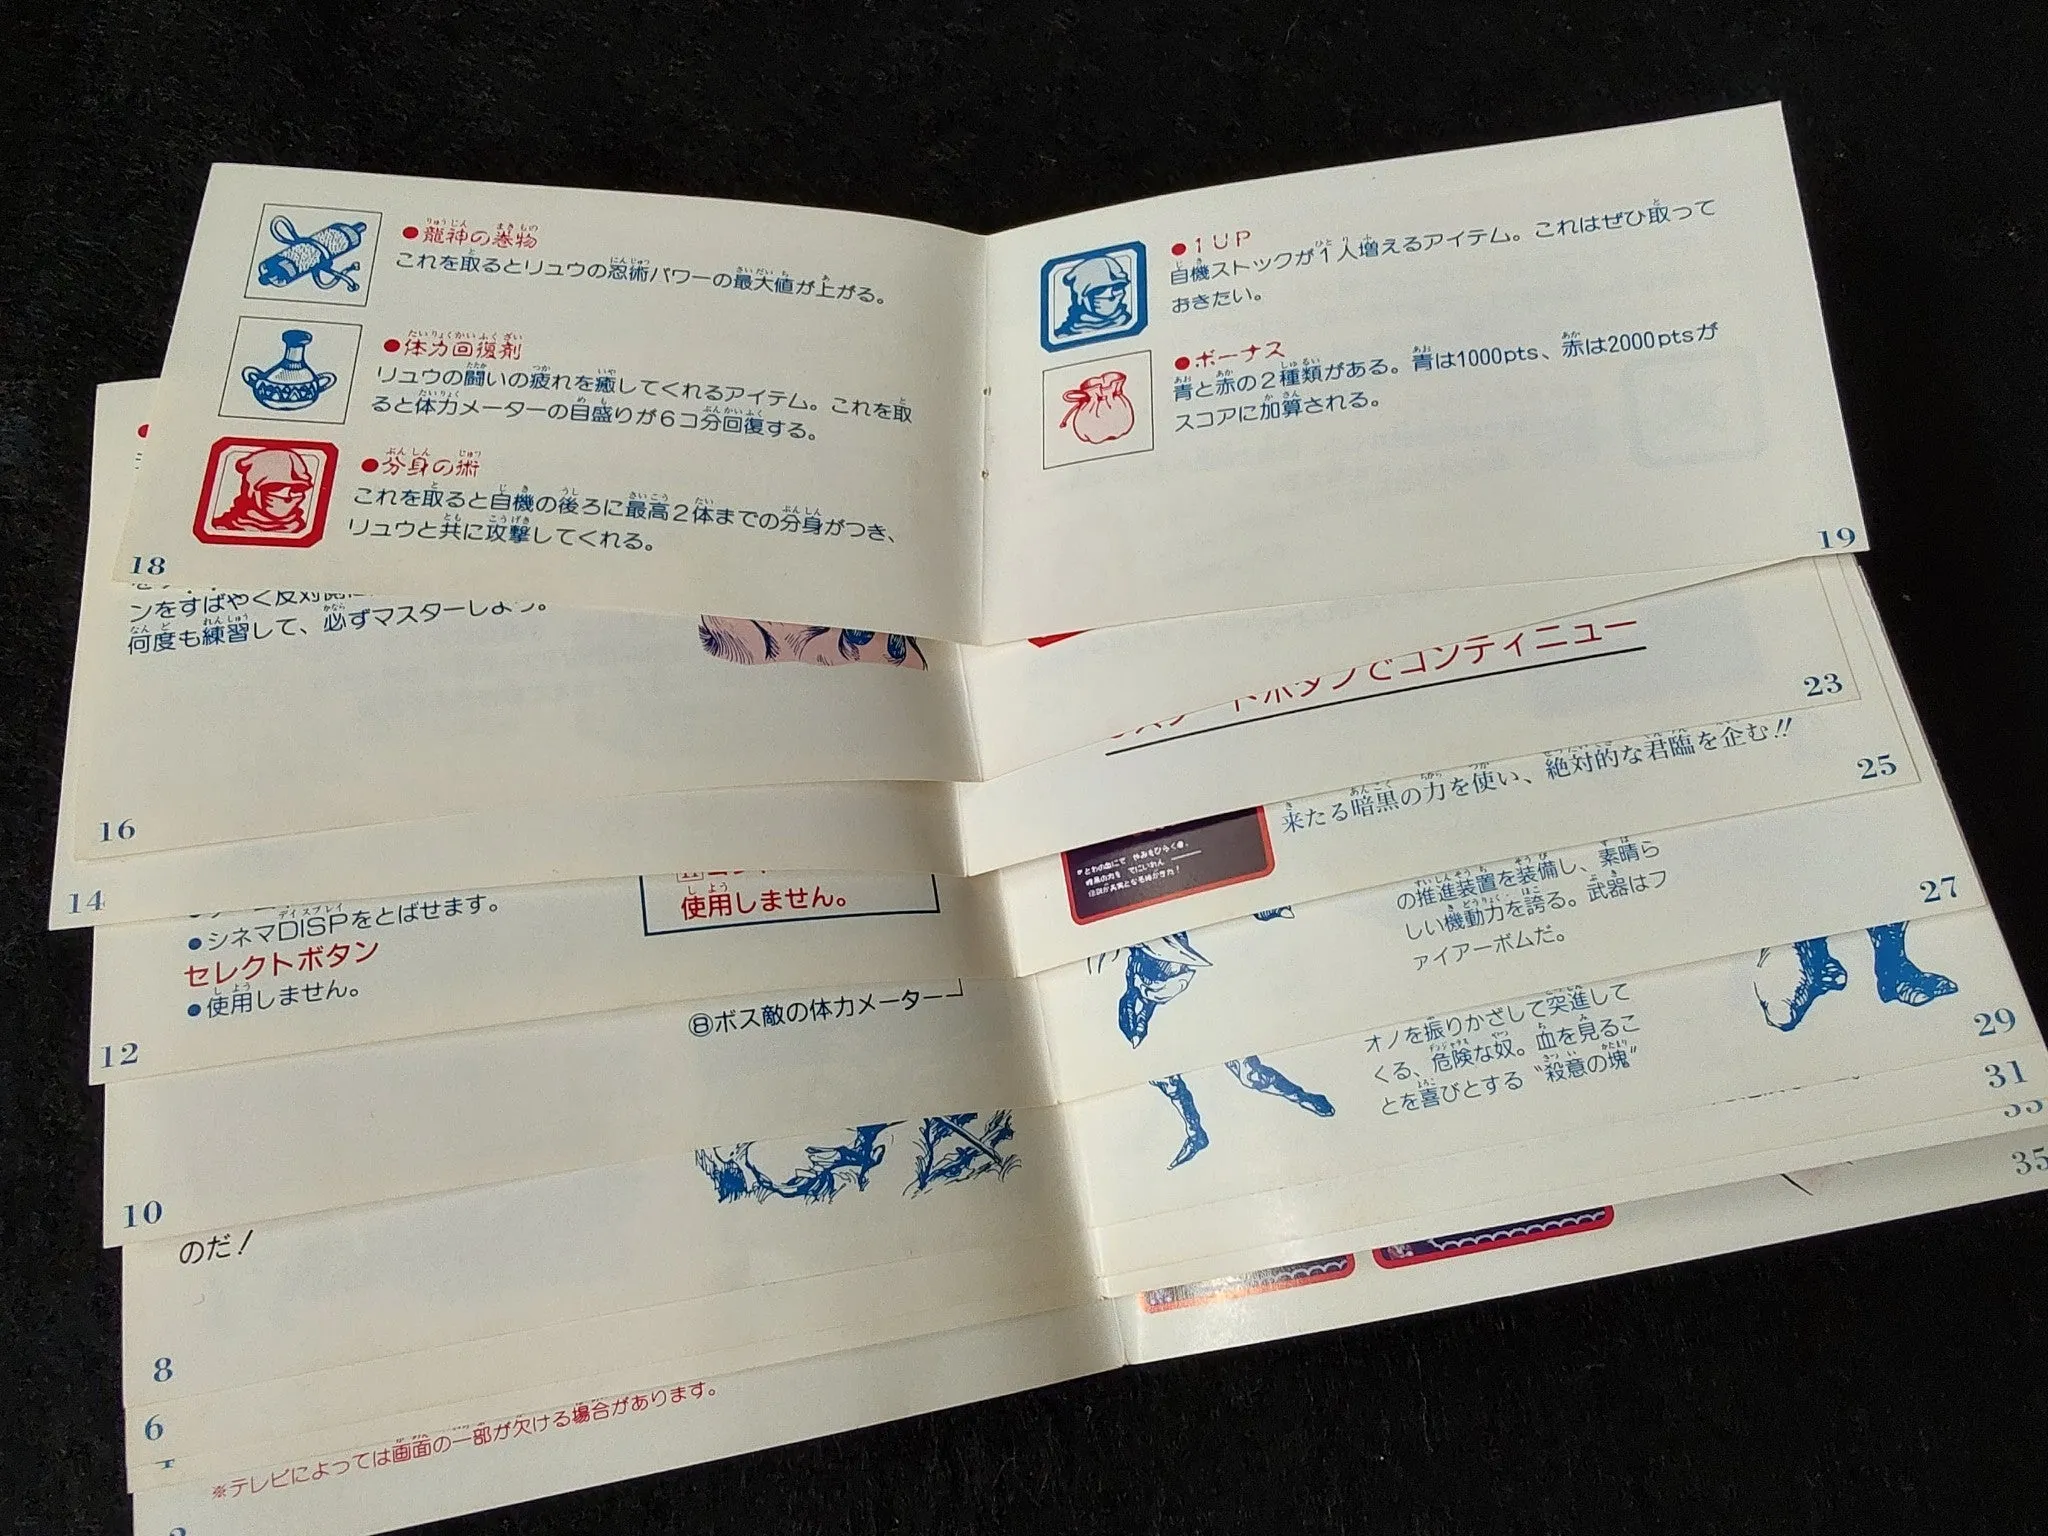 ●龍神の巻物
これを取るとリュウの忍術パワーの最大値が上がる。
●体力回復剤
リュウの闘いの疲れを癒してくれるアイテム。これを取
ると体力メーターの目盛りが6コ分回復する。
●分身の術
これを取ると自機の後ろに最高2体までの分身がつき、
リュウと共に攻撃してくれる。
18
●1UP
自機ストックが1人増えるアイテム。これはぜひ取って
おきたい。
●ボーナス
青と赤の2種類がある。青は1000pts、赤は2000ptsが
スコアに加算される。
19
ンをすばやく反対
何度も練習して、必ずマスターしよう。
16
14
●シネマDISPをとばせます。
セレクトボタン
●使用しません。
使用しません。
12
⑧ボス敵の体力メーター
10
のだ!
8
6
※テレビによっては画面の一部が欠ける場合があります。
タートボタンでコンティニュー
23
来たる暗黒の力を使い、絶対的な君臨を企む!!
25
の推進装置を装備し、素晴ら
しい機動力を誇る。武器はフ
ァイアーボムだ。
27
オノを振りかざして突進して
くる、危険な奴。血を見るこ
とを喜びとする“殺意の塊”
29
31
33
35